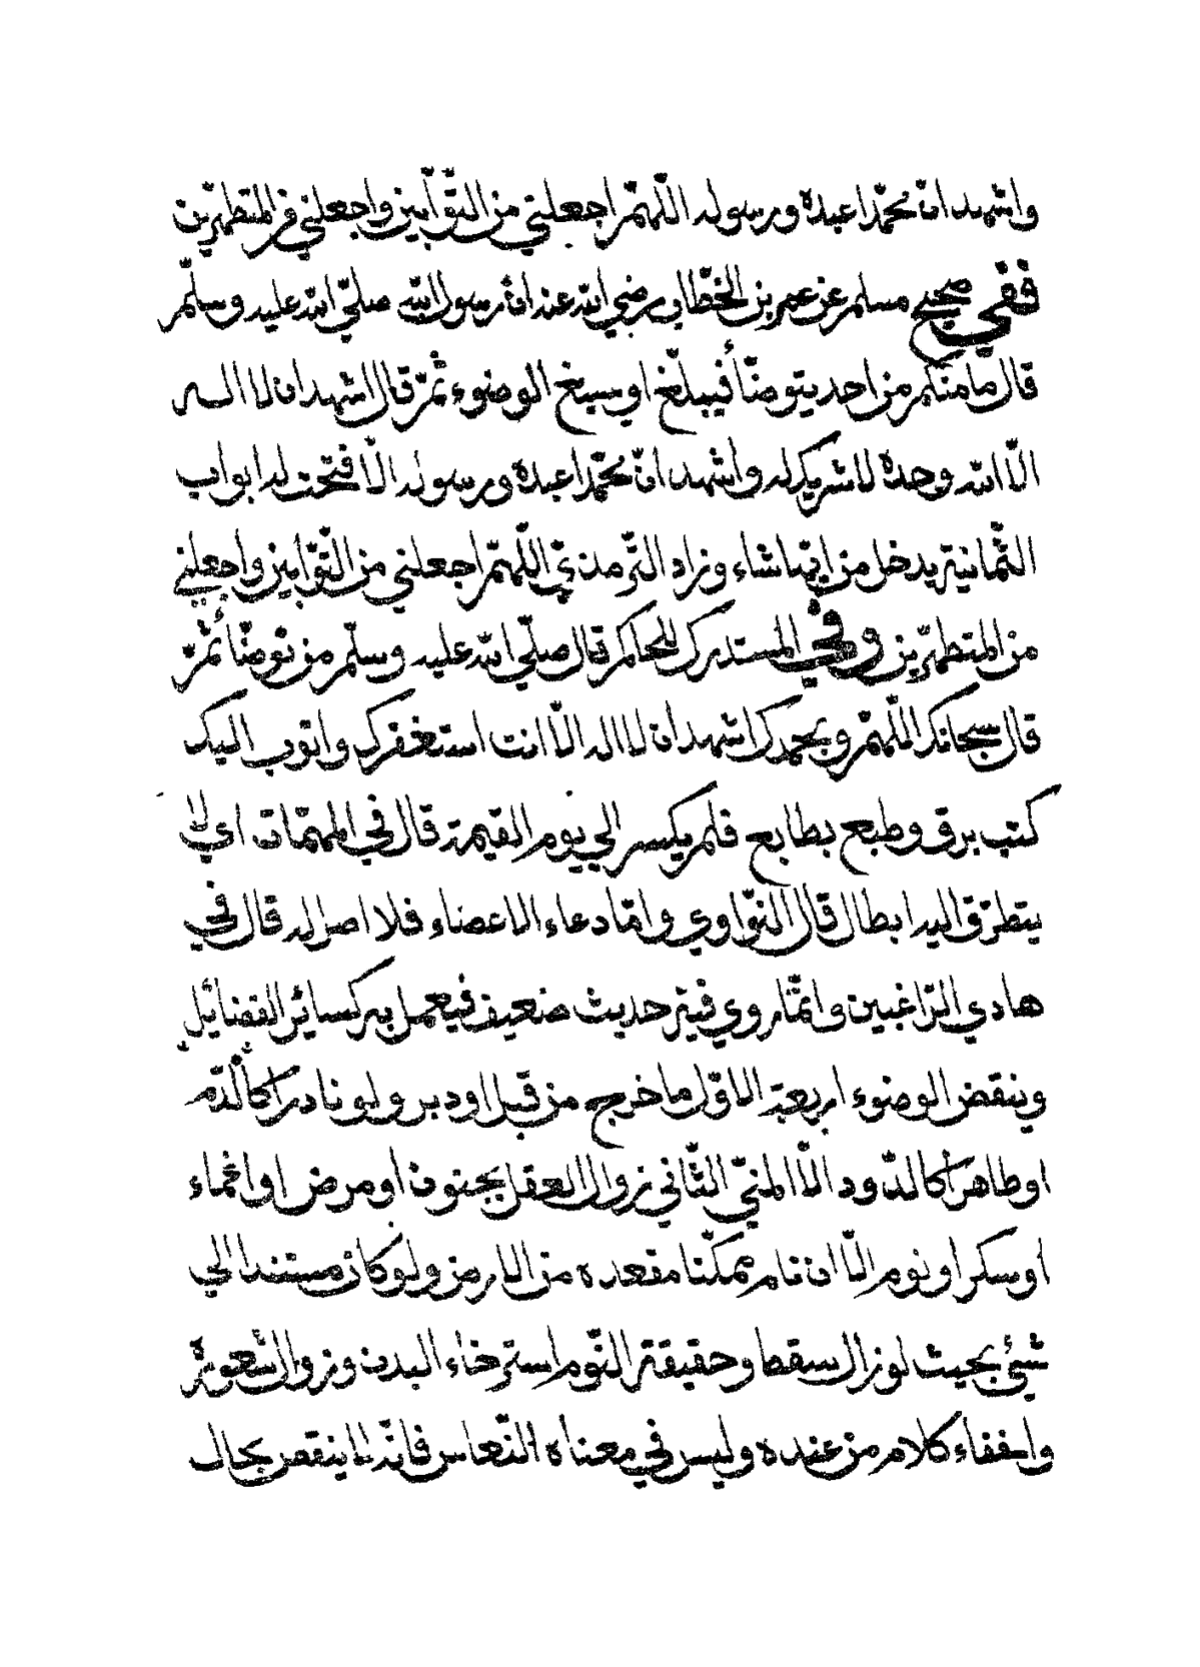 واشهد انّ محمّدا عبده ورسوله اللّهمّ اجعلني من التّوّابين واجعلني من المتطهّرين
ففي صحيح مسلم عن عمر بن الخطّاب رضي الله عنه انّ رسول الله صلّي الله عليه وسلّم
قال ما منكم من احد يتوضّأ فيبلّغ او يسبغ الوضوء ثمّ قال اشهد ان لا اله
الّا الله وحده لا شريك له واشهد انّ محمّدا عبده ورسوله الّا فتّحت له ابواب
الثّمانية يدخل من ايّها شاء وزاد التّرمذيّ اللّهمّ اجعلني من التّوّابين واجعلني
من المتطهّرين وفي المستدرك للحاكم قال صلّي الله عليه وسلّم من توضّأ ثمّ
قال سبحانك اللّهمّ وبحمدك اشهد ان لا اله الّا انت استغفرك واتوب اليك
كتب برق وطبع بطابع فلم يكسر الي يوم القيمة قال في المهمّات اي لا
يتطرّق اليه ابطال قال النّواوي وامّا دعاء الاعضاء فلا اصل له قال في
هادي الرّاغبين وانّما روي فيه حديث ضعيف فيعمل به كسائر الفضائل
وينقض الوضوء اربعة الاوّل ما خرج من قبل او دبر ولو نادرا كالدّم
او طاهرا كالدّود الّا المنيّ الثّاني زوال العقل بجنون او مرض او اغماء
او سكر او نوم الّا ان نام ممكّنا مقعده من الارض ولو كان مستندا الي
شيئ بحيث لو زال سقط وحقيقة النّوم استرخاء البدن وزوال شعوره
واخفاء كلام من عنده وليس في معناه النّعاس فانّه لا ينقض بحال